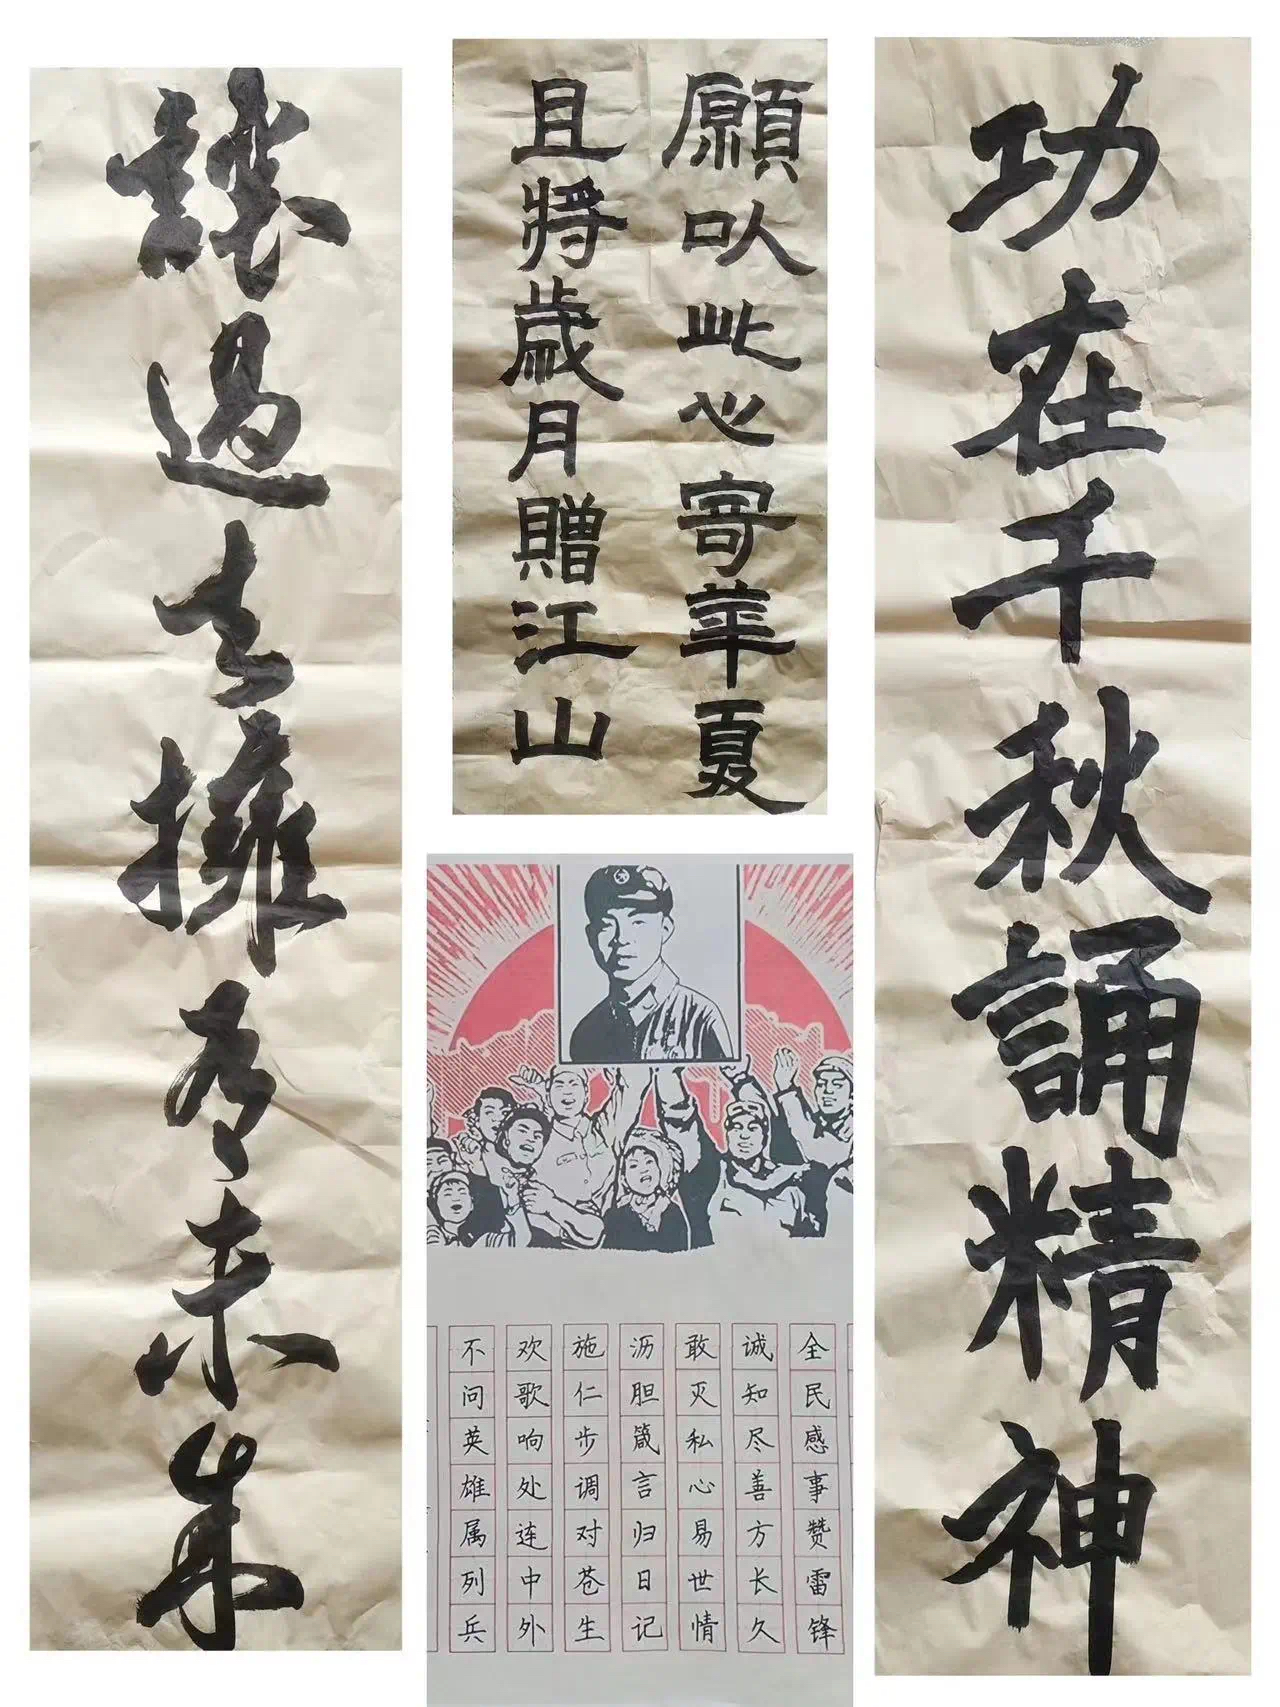 功在千秋誦精神
願以此心寄華夏
且將歲月贈江山
讓過去擁有未来
全民感事赞雷锋
诚知尽善方长久
敢灭私心易世情
沥胆箴言归日记
施仁步调对苍生
欢歌响处连中外
不问英雄属列兵